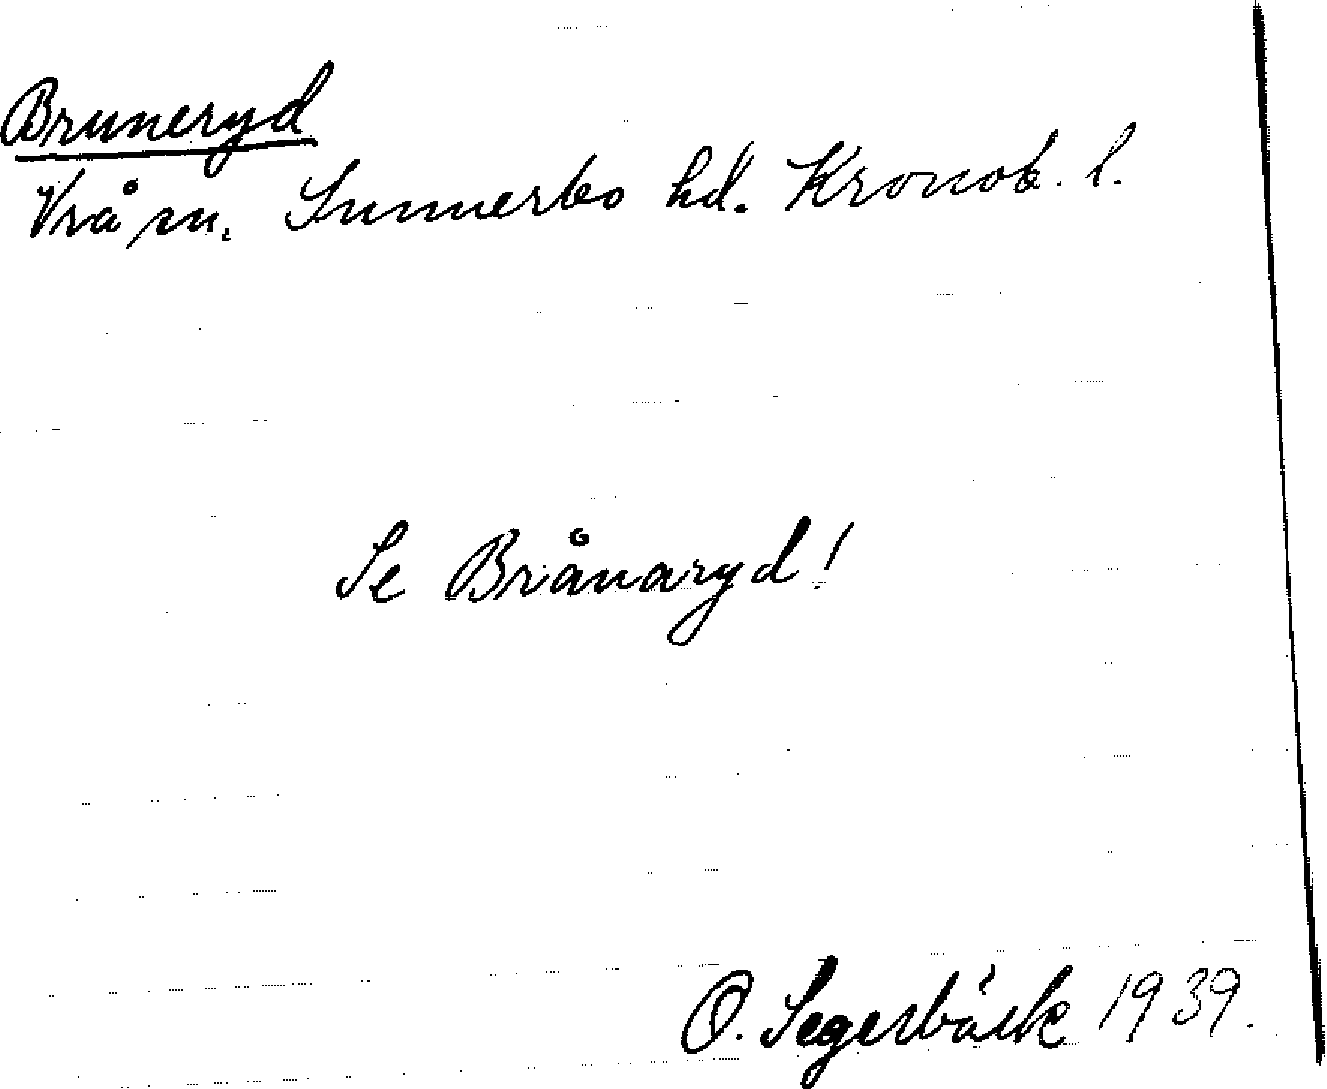 Bruneryd
Vrå sn. Sunnerbo hd. Kronob. l.
Se Brånaryd!
O. Segerbäck 1939.